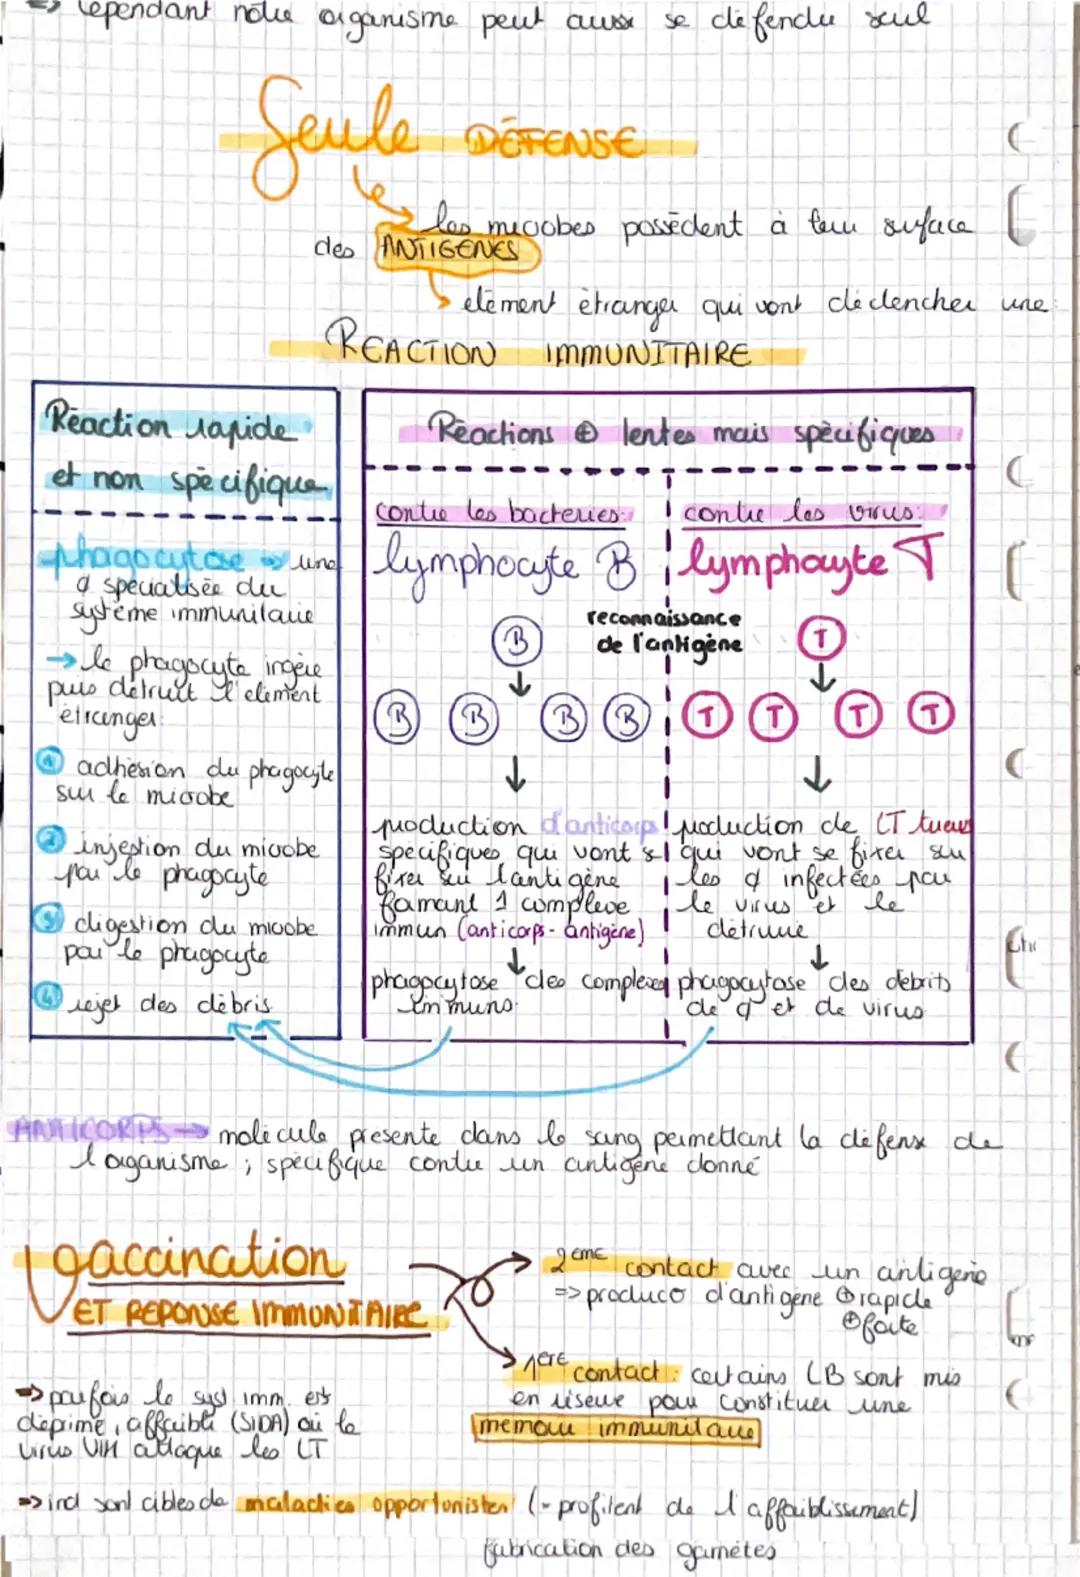 => Cependant notre organisme peut aussi se défendre seul
Seule DÉFENSE
les microbes possèdent à leur surface
des ANTIGENES
élément étranger qui vont déclencher une
REACTION IMMUNITAIRE
Réaction rapide
et non spécifique
phagocytose → une
¢ specialisée du
système immunitaire
→ le phagocyte ingère
puis détruit l'element
étranger:
① adhésion du phagocyte
sur le microbe
② injestion du microbe
par le phagocyte
③ digestion du microbe
par le phagocyte
④ rejet des débris
Réactions ⊕ lentes mais spécifiques
contre les bacteries:
lymphocyte B
contre les virus:
lymphocyte T
reconnaissance
de l'antigène
B
T
B B B B
T T T T
production d'anticorps
spécifiques qui vont s
fixer sur l'antigène
formant 1 complexe
immun (anticorps-antigène)
phagocytose des complexes
immuns
production de LT tueurs
qui vont se fixer sur
les ¢ infectées par
le virus et le
détruire
phagocytose des débris
de ¢ et de virus
ANTICORPS → molécule présente dans le sang permettant la défense de
l'organisme ; spécifique contre un antigène donné
Vaccination
ET REPONSE IMMUNITAIRE
2eme contact avec un antigène
=> produc° d'antigène ⊕ rapide
⊕ forte
1ère contact: certains LB sont mis
en réserve pour constituer une
memoire immunitaire
=> parfois le syst imm. est
déprimé, affaibli (SIDA) où le
virus VIH attaque les LT
=> ind sont cibles de maladies opportunistes (- profitent de l'affaiblissement)
fabrication des gamètes